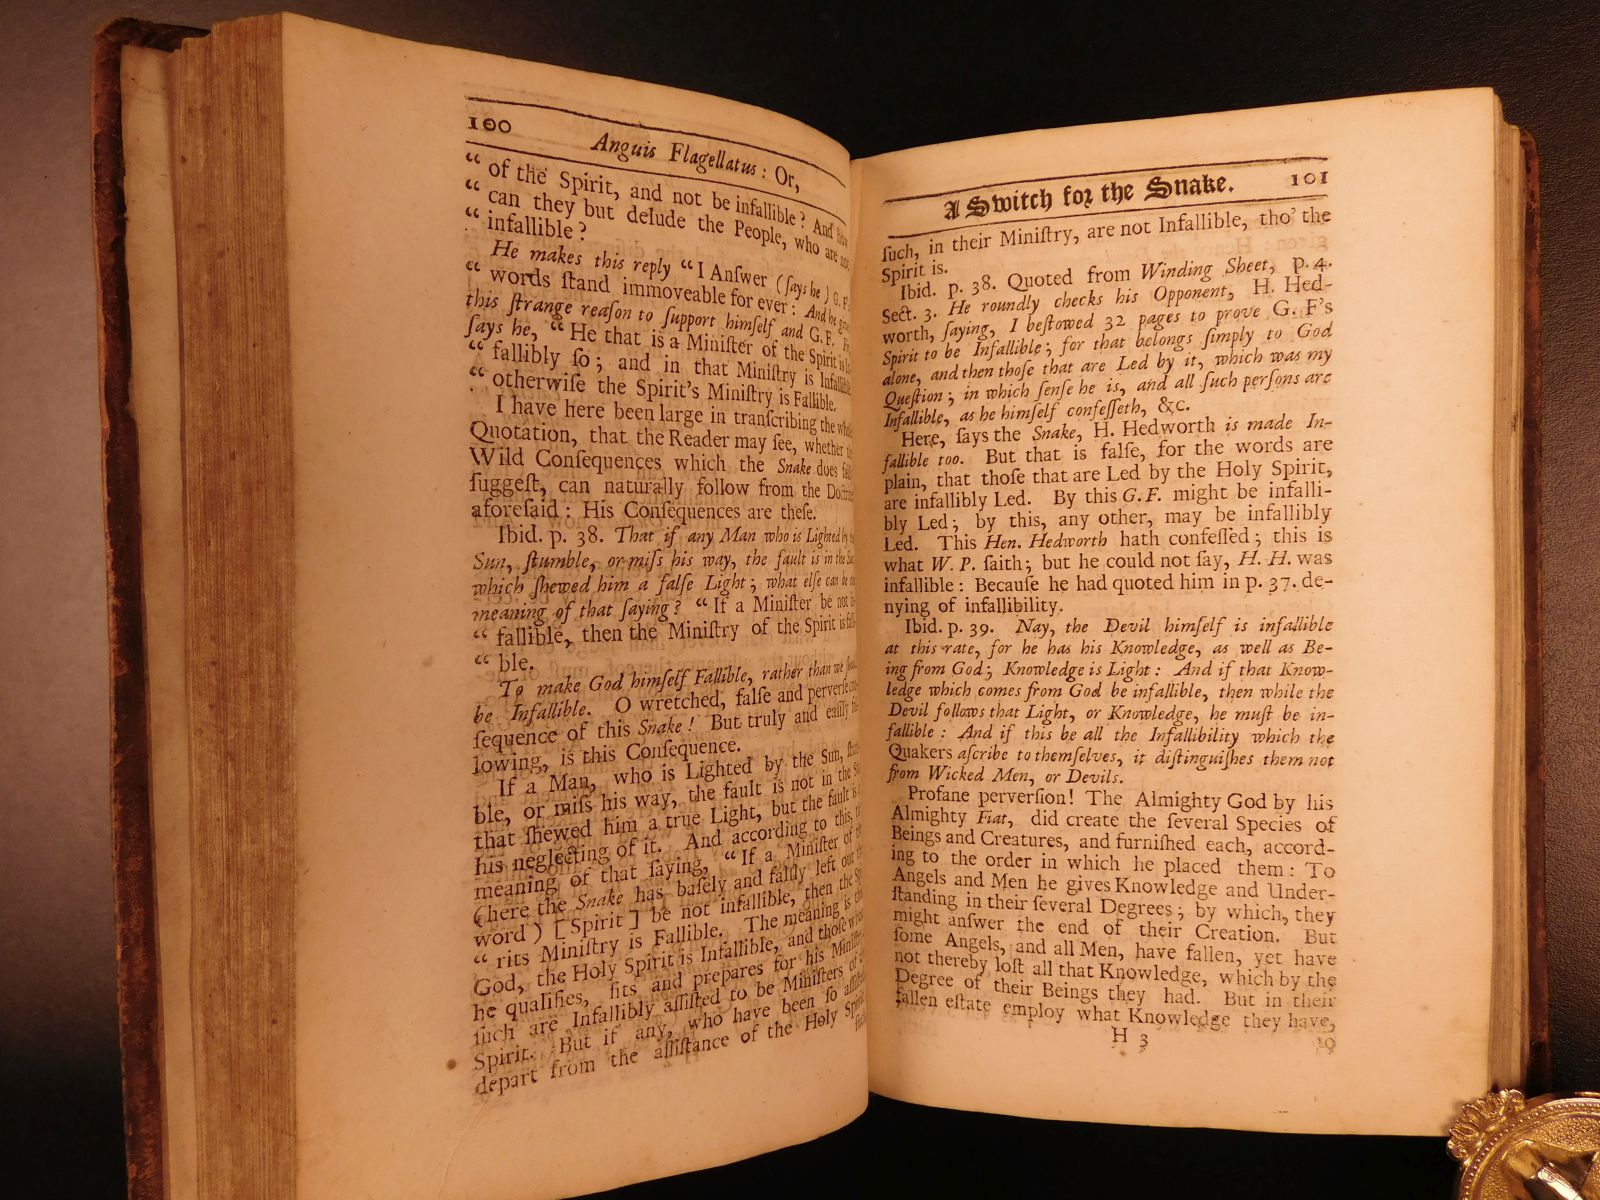 100
Anguis Flagellatus: Or,
“ of the Spirit, and not be infallible? And how
“ can they but delude the People, who are not
“ infallible?
He makes this reply “ I Anſwer (ſays he) G. F's
“ words ſtand immoveable for ever: And he gives
this ſtrange reaſon to ſupport himſelf and G. F.
ſays he, “ He that is a Miniſter of the Spirit is
“ fallibly ſo; and in that Miniſtry is Infallible,
“ otherwiſe the Spirit's Miniſtry is Fallible.
I have here been large in tranſcribing the whole
Quotation, that the Reader may ſee, whether
Wild Conſequences which the Snake does
ſuggeſt, can naturally follow from the Doctrine
aforeſaid: His Conſequences are theſe.
Ibid. p. 38. That if any Man who is Lighted by
Sun, ſtumble, or miſs his way, the fault is in the
which ſhewed him a falſe Light; what elſe can be
meaning of that ſaying? “ If a Miniſter be not
“ fallible, then the Miniſtry of the Spirit is
“ ble.
To make God himſelf Fallible, rather than we
be Infallible. O wretched, falſe and perverſe
ſequence of this Snake! But truly and eaſily
lowing, is this Conſequence.
If a Man, who is Lighted by the Sun,
ble, or miſs his way, the fault is not in the
that ſhewed him a true Light, but the fault
his neglecting of it. And according to this,
meaning of that ſaying, “ If a Miniſter of
(here the Snake has baſely and falſly left out
word) [Spirit] be not infallible, then the
“ rits Miniſtry is Fallible. The meaning is
God, the Holy Spirit is Infallible, and thoſe
he qualifies, fits and prepares for his
ſuch are Infallibly aſſiſted to be Miniſters of
Spirit. But if any, who have been ſo
depart from the aſſiſtance of the Holy
A Switch for the Snake. 101
ſuch, in their Miniſtry, are not Infallible, tho' the
Spirit is.
Ibid. p. 38. Quoted from Winding Sheet, p. 4.
Sect. 3. He roundly checks his Opponent, H. Hed-
worth, ſaying, I beſtowed 32 pages to prove G. F's
Spirit to be Infallible; for that belongs ſimply to God
alone, and then thoſe that are Led by it, which was my
Queſtion; in which ſenſe he is, and all ſuch perſons are
Infallible, as he himſelf confeſſeth, &c.
Here, ſays the Snake, H. Hedworth is made In-
fallible too. But that is falſe, for the words are
plain, that thoſe that are Led by the Holy Spirit,
are infallibly Led. By this G. F. might be infalli-
bly Led; by this, any other, may be infallibly
Led. This Hen. Hedworth hath confeſſed; this is
what W. P. ſaith; but he could not ſay, H. H. was
infallible: Becauſe he had quoted him in p. 37. de-
nying of infallibility.
Ibid. p. 39. Nay, the Devil himſelf is infallible
at this rate, for he has his Knowledge, as well as Be-
ing from God; Knowledge is Light: And if that Know-
ledge which comes from God be infallible, then while the
Devil follows that Light, or Knowledge, he muſt be in-
fallible: And if this be all the Infallibility which the
Quakers aſcribe to themſelves, it diſtinguiſhes them not
from Wicked Men, or Devils.
Profane perverſion! The Almighty God by his
Almighty Fiat, did create the ſeveral Species of
Beings and Creatures, and furniſhed each, accord-
ing to the order in which he placed them: To
Angels and Men he gives Knowledge and Under-
ſtanding in their ſeveral Degrees; by which, they
might anſwer the end of their Creation. But
ſome Angels, and all Men, have fallen, yet have
not thereby loſt all that Knowledge, which by the
Degree of their Beings they had. But in their
fallen eſtate employ what Knowledge they have,
H 3
to